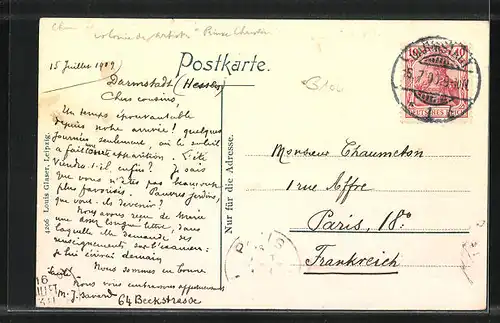 Postkarte.
15 Juillet 1909
Darmstadt (Hesse)
Chers cousins,
Un temps épouvantable
depuis notre arrivée! quelques
journées seulement, où le soleil
a fait une apparition. L'été
viendra-t-il, enfin? Je sais
que vous n'êtes pas beaucoup
plus favorisés. Pauvres jardins,
que vont-ils devenir?
Nous avons reçu de Marie
une assez longue lettre, dans
laquelle elle demande des
renseignements sur l'examen:
je lui écrirai demain
Nous sommes en bonne
santé
Nous vous embrassons affectueusement
M. J. Savard 64 Beckstrasse
4206 Louis Glaser, Leipzig.
Nur für die Adresse.
Monsieur Chaumeton
1 rue Affre
Paris, 18e
Frankreich